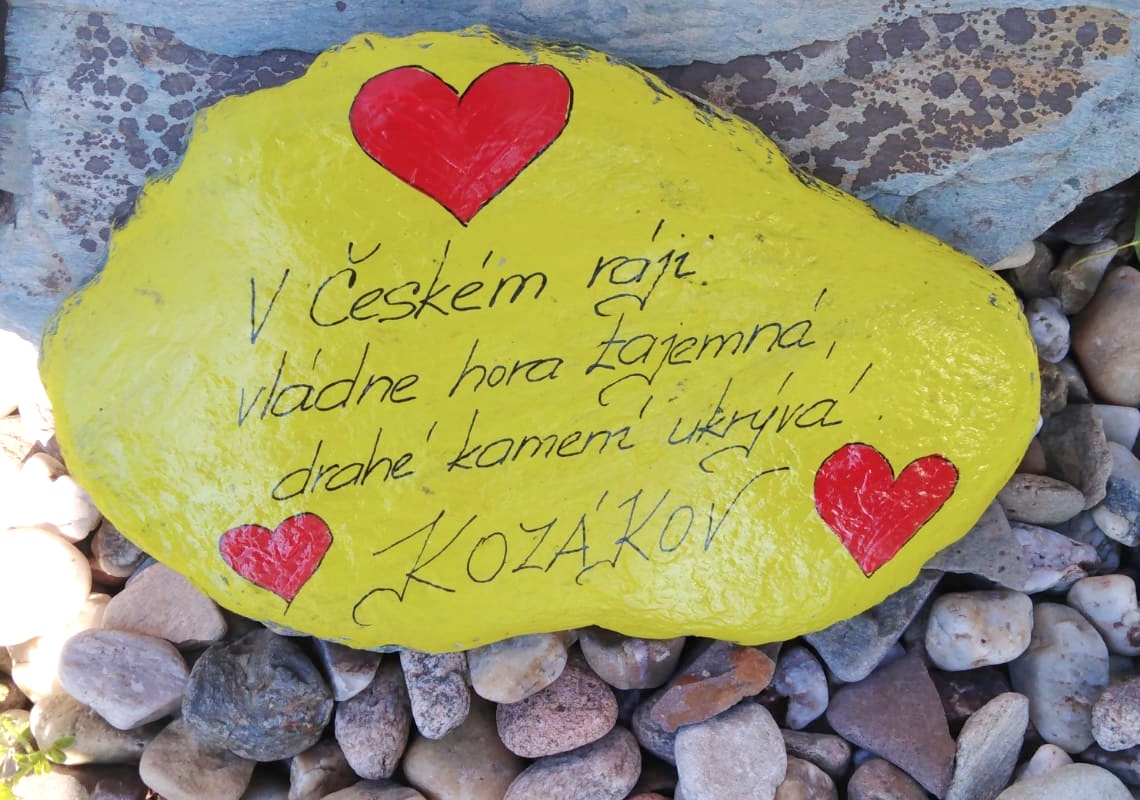 V Českém ráji
vládne hora tajemná,
drahé kamení ukrývá.
KOZÁKOV